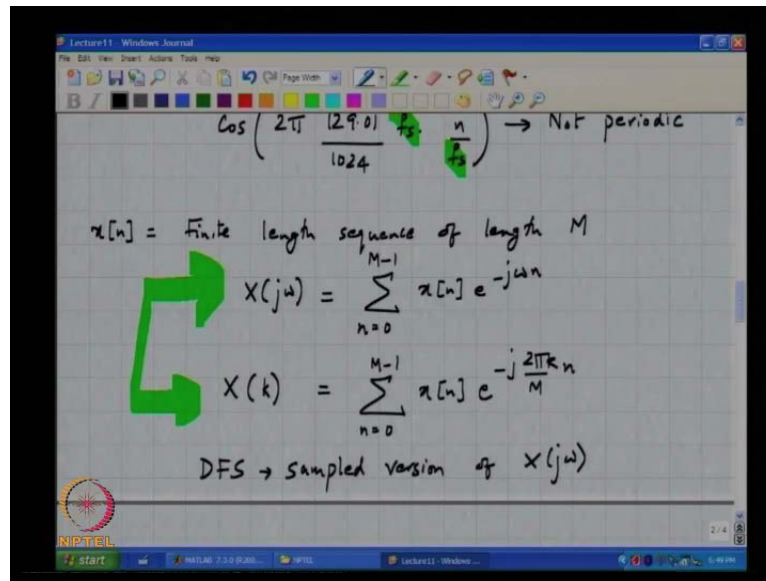 Lecture11 - Windows Journal
File Edit View Insert Actions Tools Help
Page Width
B I
Cos ( 2π 129.01/1024 fs. n/fs ) → Not periodic
x[n] = Finite length sequence of length M
X(jω) = ∑_{n=0}^{M-1} x[n] e^{-jωn}
X(k) = ∑_{n=0}^{M-1} x[n] e^{-j 2πk/M n}
DFS → sampled version of X(jω)
NPTEL
2/4
start MATLAB 7.3.0 (R200... NPTEL Lecture11 - Windows ... 6:49 PM